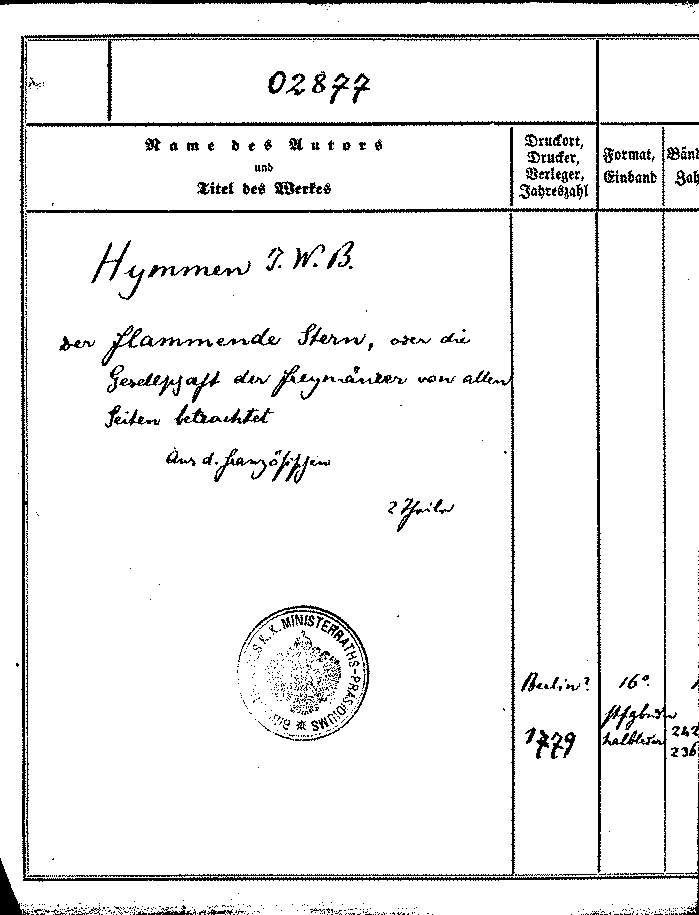 02877
Name des Autors
und
Titel des Werkes
Druckort,
Drucker,
Verleger,
Jahreszahl
Format,
Einband
Hymmen J. W. B.
Der flammende Stern, oder die
Gesellschaft der Freymäurer von allen
Seiten betrachtet
Aus d. französischen
2 Theile
K. K. MINISTERRATHS-PRÄSIDIUMS
Berlin?
16°.
1779
halbleder
242
236